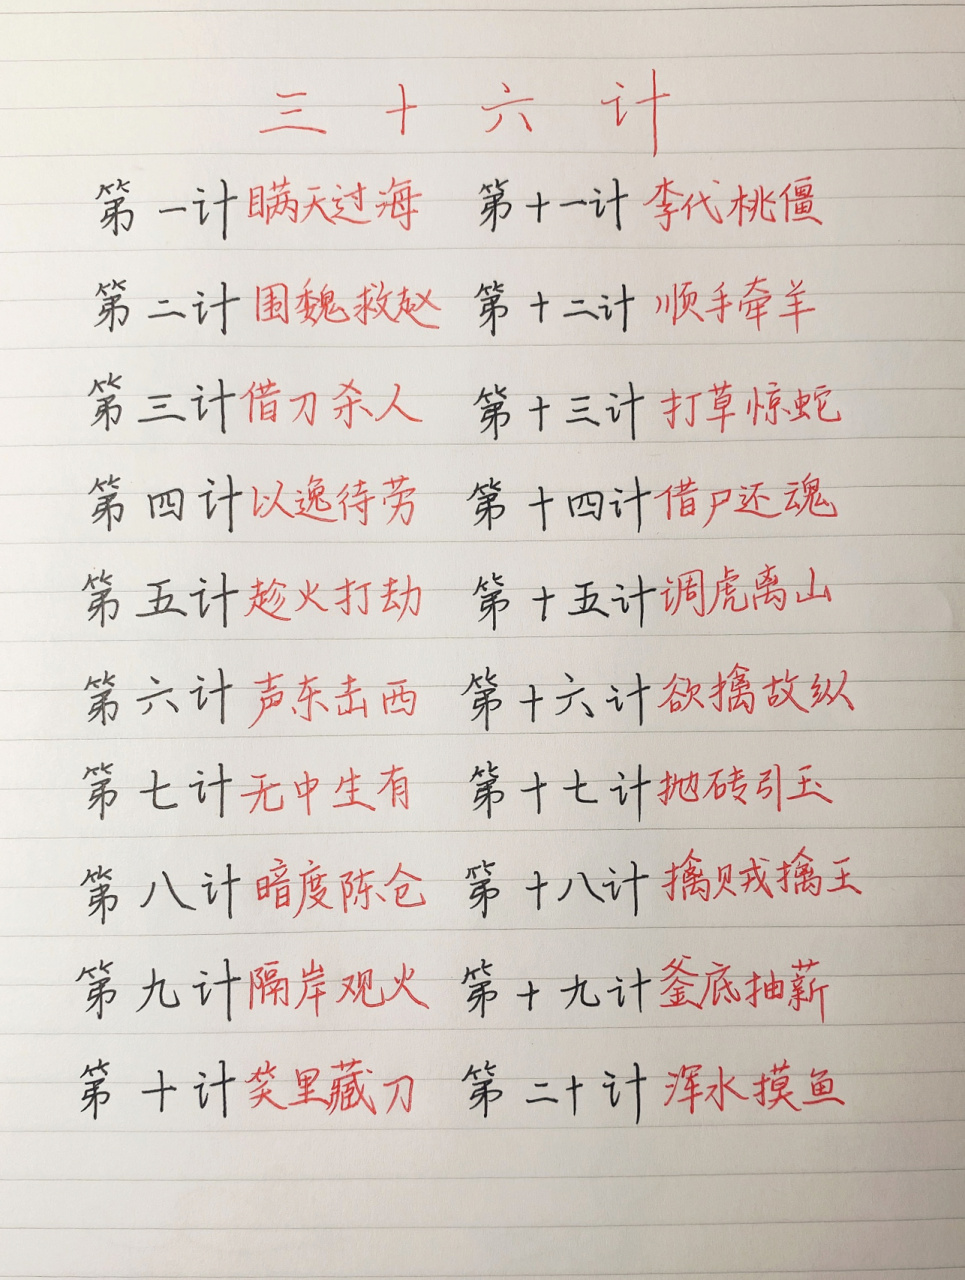 三十六计
第一计 瞒天过海 第十一计 李代桃僵
第二计 围魏救赵 第十二计 顺手牵羊
第三计 借刀杀人 第十三计 打草惊蛇
第四计 以逸待劳 第十四计 借尸还魂
第五计 趁火打劫 第十五计 调虎离山
第六计 声东击西 第十六计 欲擒故纵
第七计 无中生有 第十七计 抛砖引玉
第八计 暗度陈仓 第十八计 擒贼擒王
第九计 隔岸观火 第十九计 釜底抽薪
第十计 笑里藏刀 第二十计 浑水摸鱼